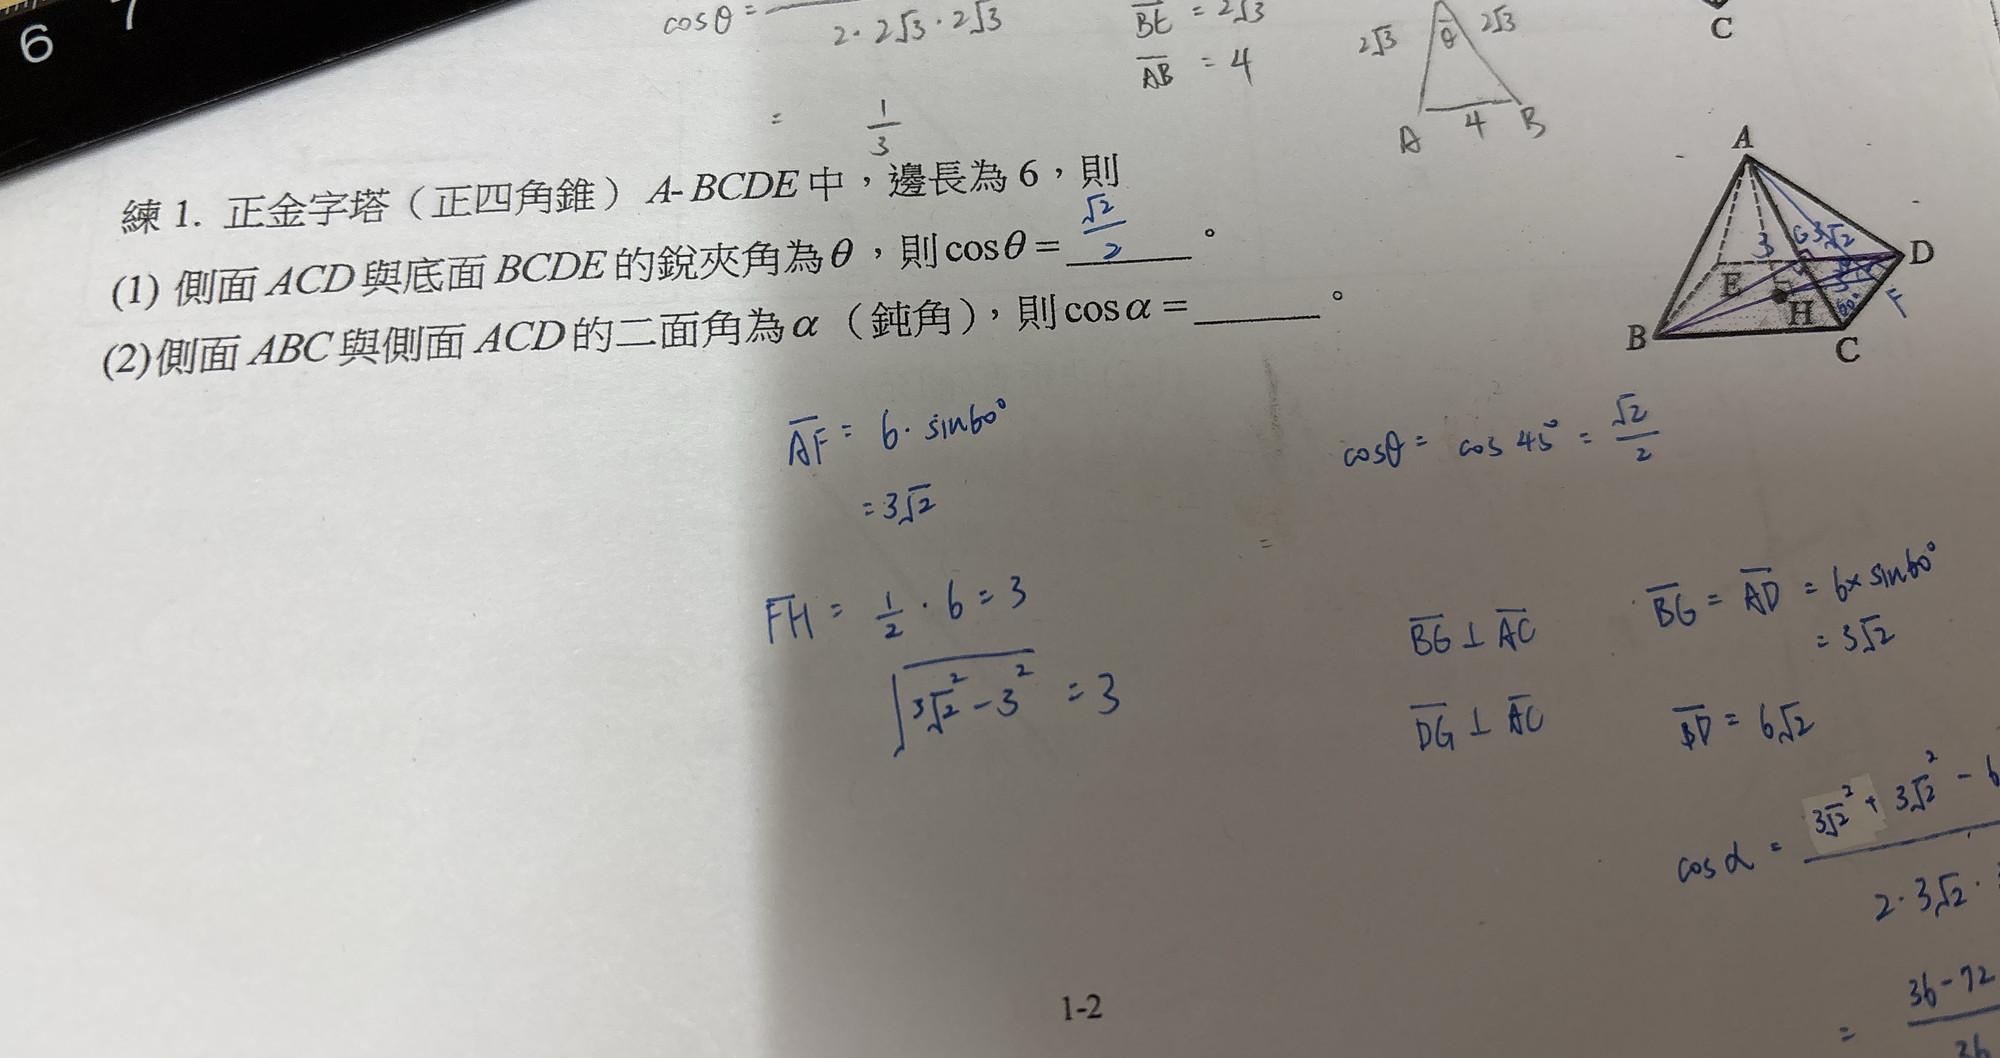 6 7
cosθ =
2·2√3·2√3
= 1/3
BE = 2√3
AB = 4
2√3 θ 2√3
A 4 B
C
練 1. 正金字塔（正四角錐）A-BCDE 中，邊長為 6，則
(1) 側面 ACD 與底面 BCDE 的銳夾角為 θ，則 cosθ = √2/2 。
(2)側面 ABC 與側面 ACD 的二面角為 α（鈍角），則 cosα = ______ 。
A
3 G 3√2
D
E
H 60° F
B
C
AF = 6·sin60°
= 3√2
FH = 1/2 · 6 = 3
√(3√2² - 3²) = 3
cosθ = cos 45° = √2/2
BG ⊥ AC
DG ⊥ AC
BG = AD = 6×sin60°
= 3√2
BD = 6√2
cosα = 3√2² + 3√2² - 6
2·3√2·
= 36-72
36
1-2